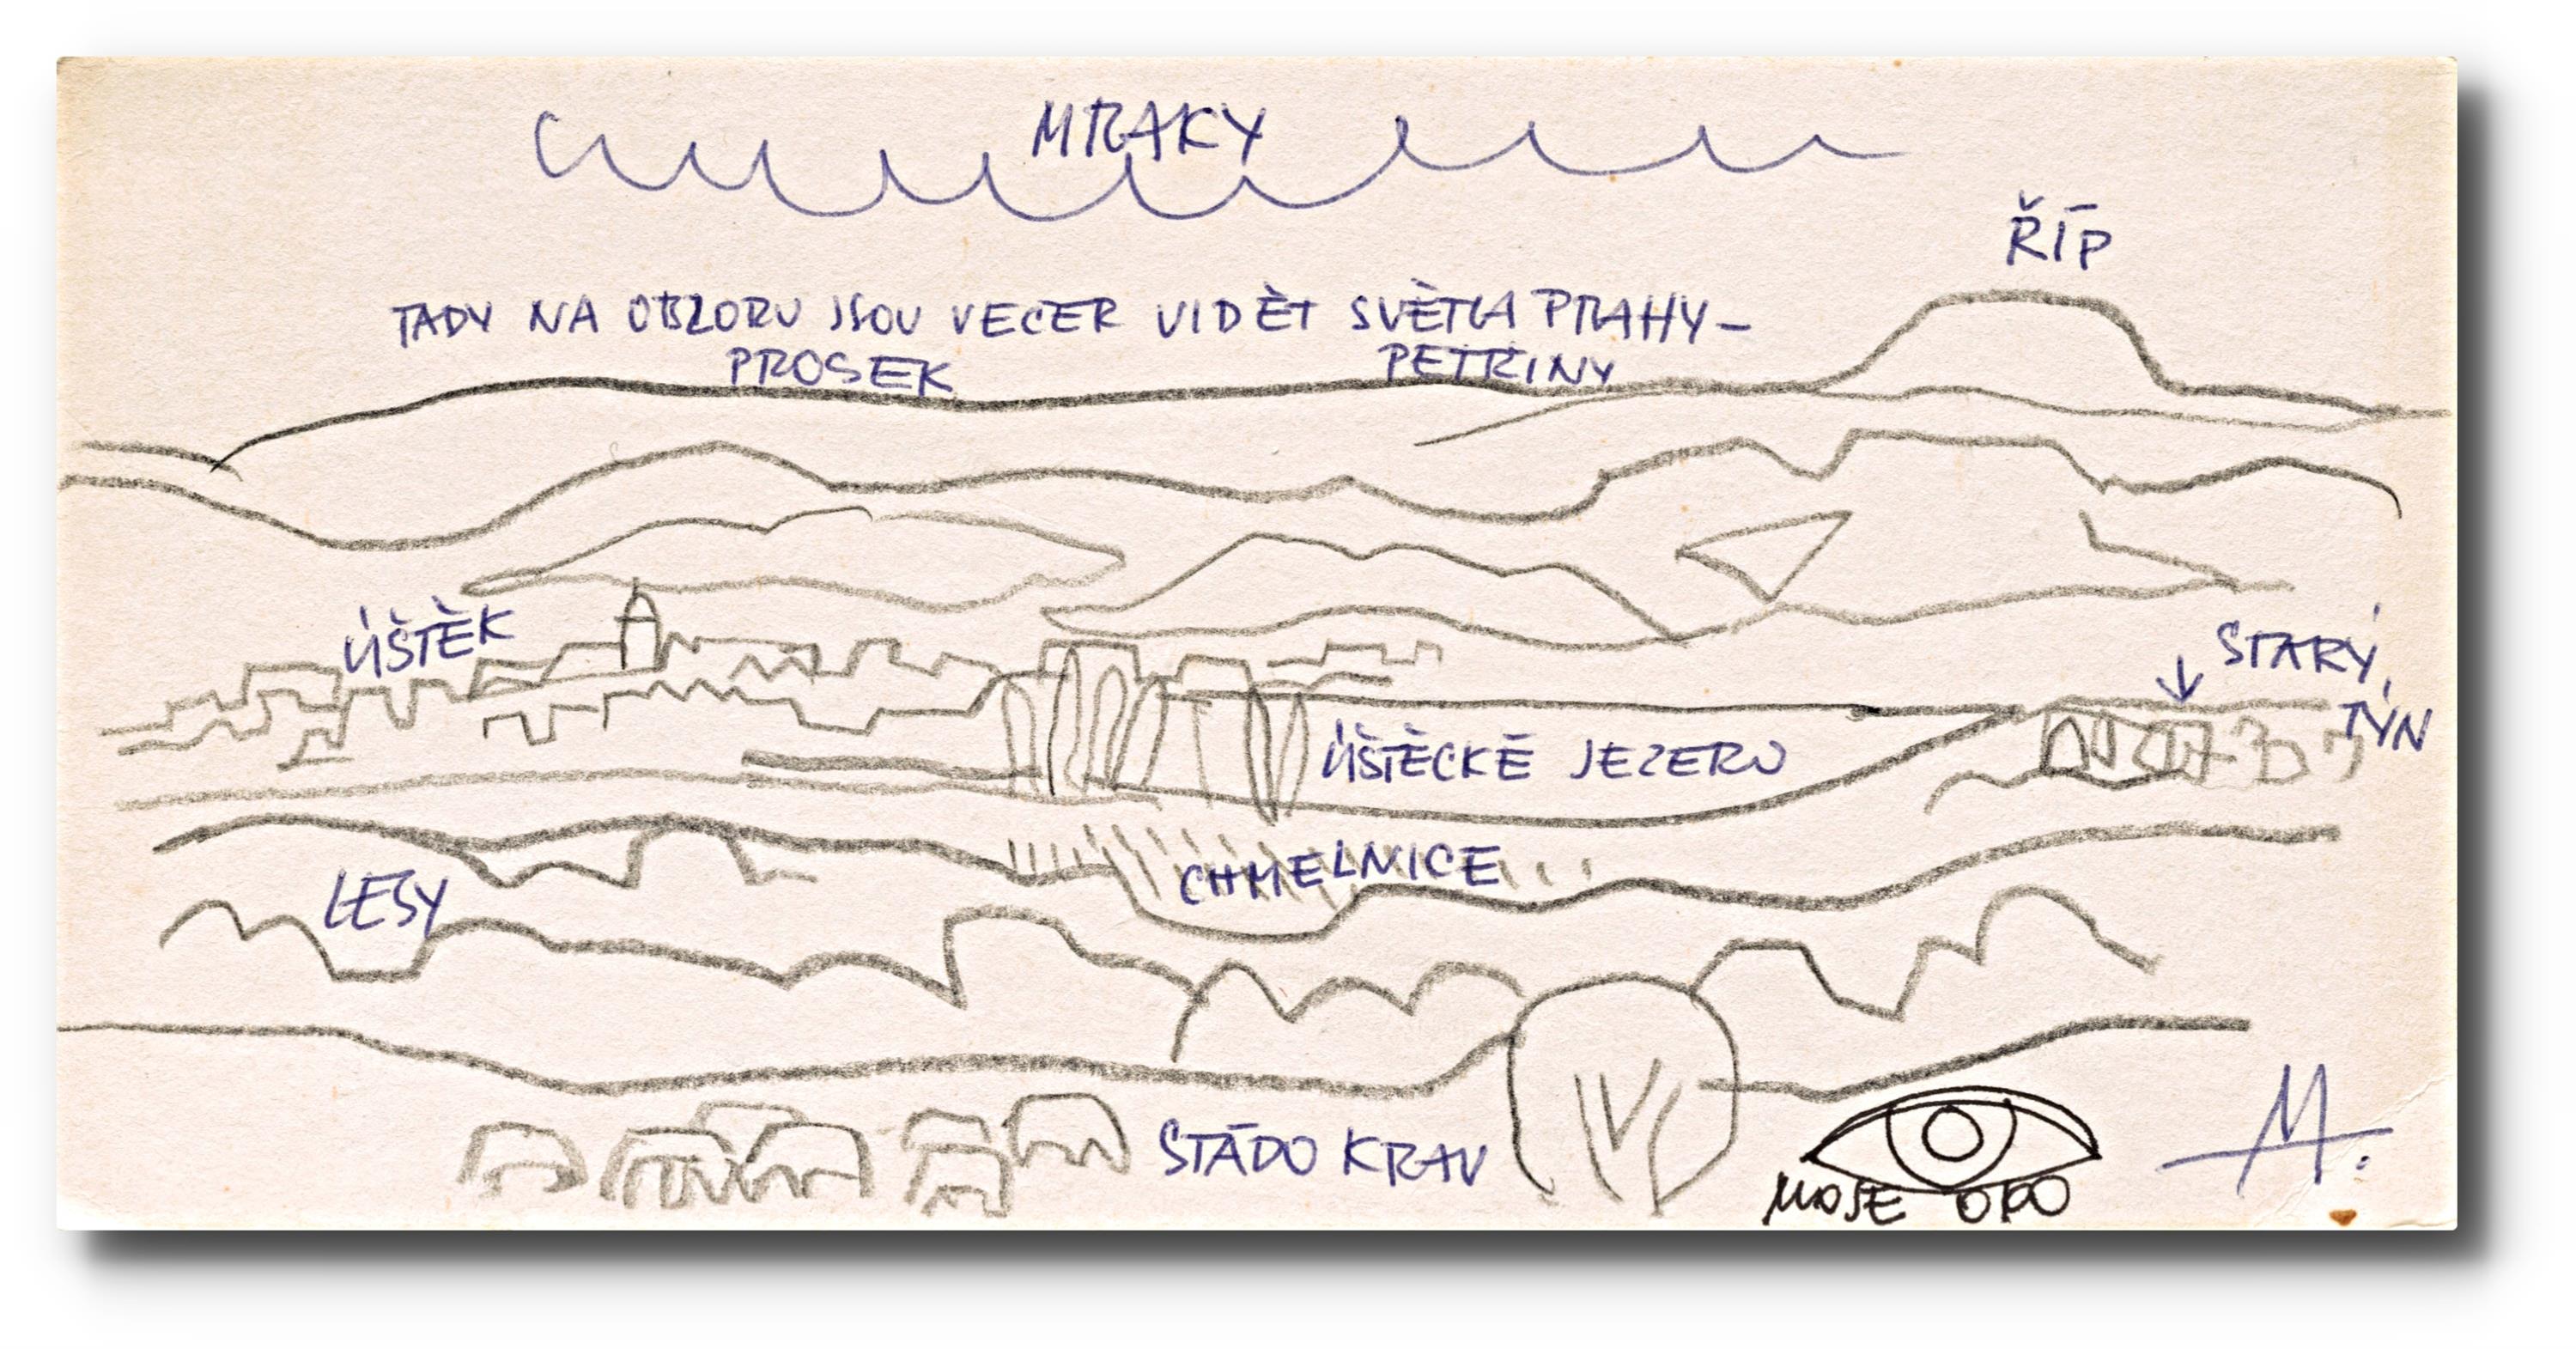 MRAKY
ŘÍP
TADY NA OBZORU JSOU VEČER VIDĚT SVĚTLA PRAHY-
PROSEK PETŘINY
ÚŠTĚK
STARÝ
TÝN
ÚŠTĚCKÉ JEZERO
CHMELNICE
LESY
STÁDO KRAV
MOJE OKO
M.